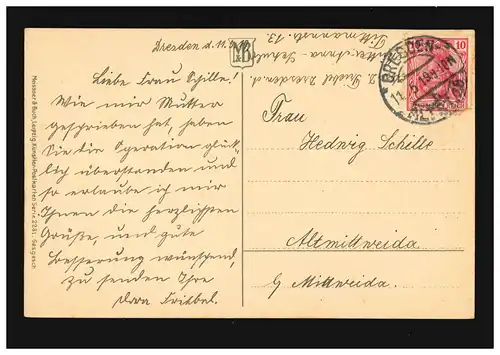 Dresden d. 11.
Liebe Frau Schille!
Wie mir Mutter
geschrieben hat, haben
Sie die Operation glück-
lich überstanden und
so erlaube ich mir
Ihnen die herzlichsten
Grüße, und gute
Besserung wünschend,
zu senden Ihre
Dora
Meissner & Buch, Leipzig. Künstler-Postkarten Serie 2281. Ges. gesch.
M&B
Dresden
DRESDEN
ALTST.
10
Frau
Hedwig Schille
Altmittweida
b/ Mittweida.